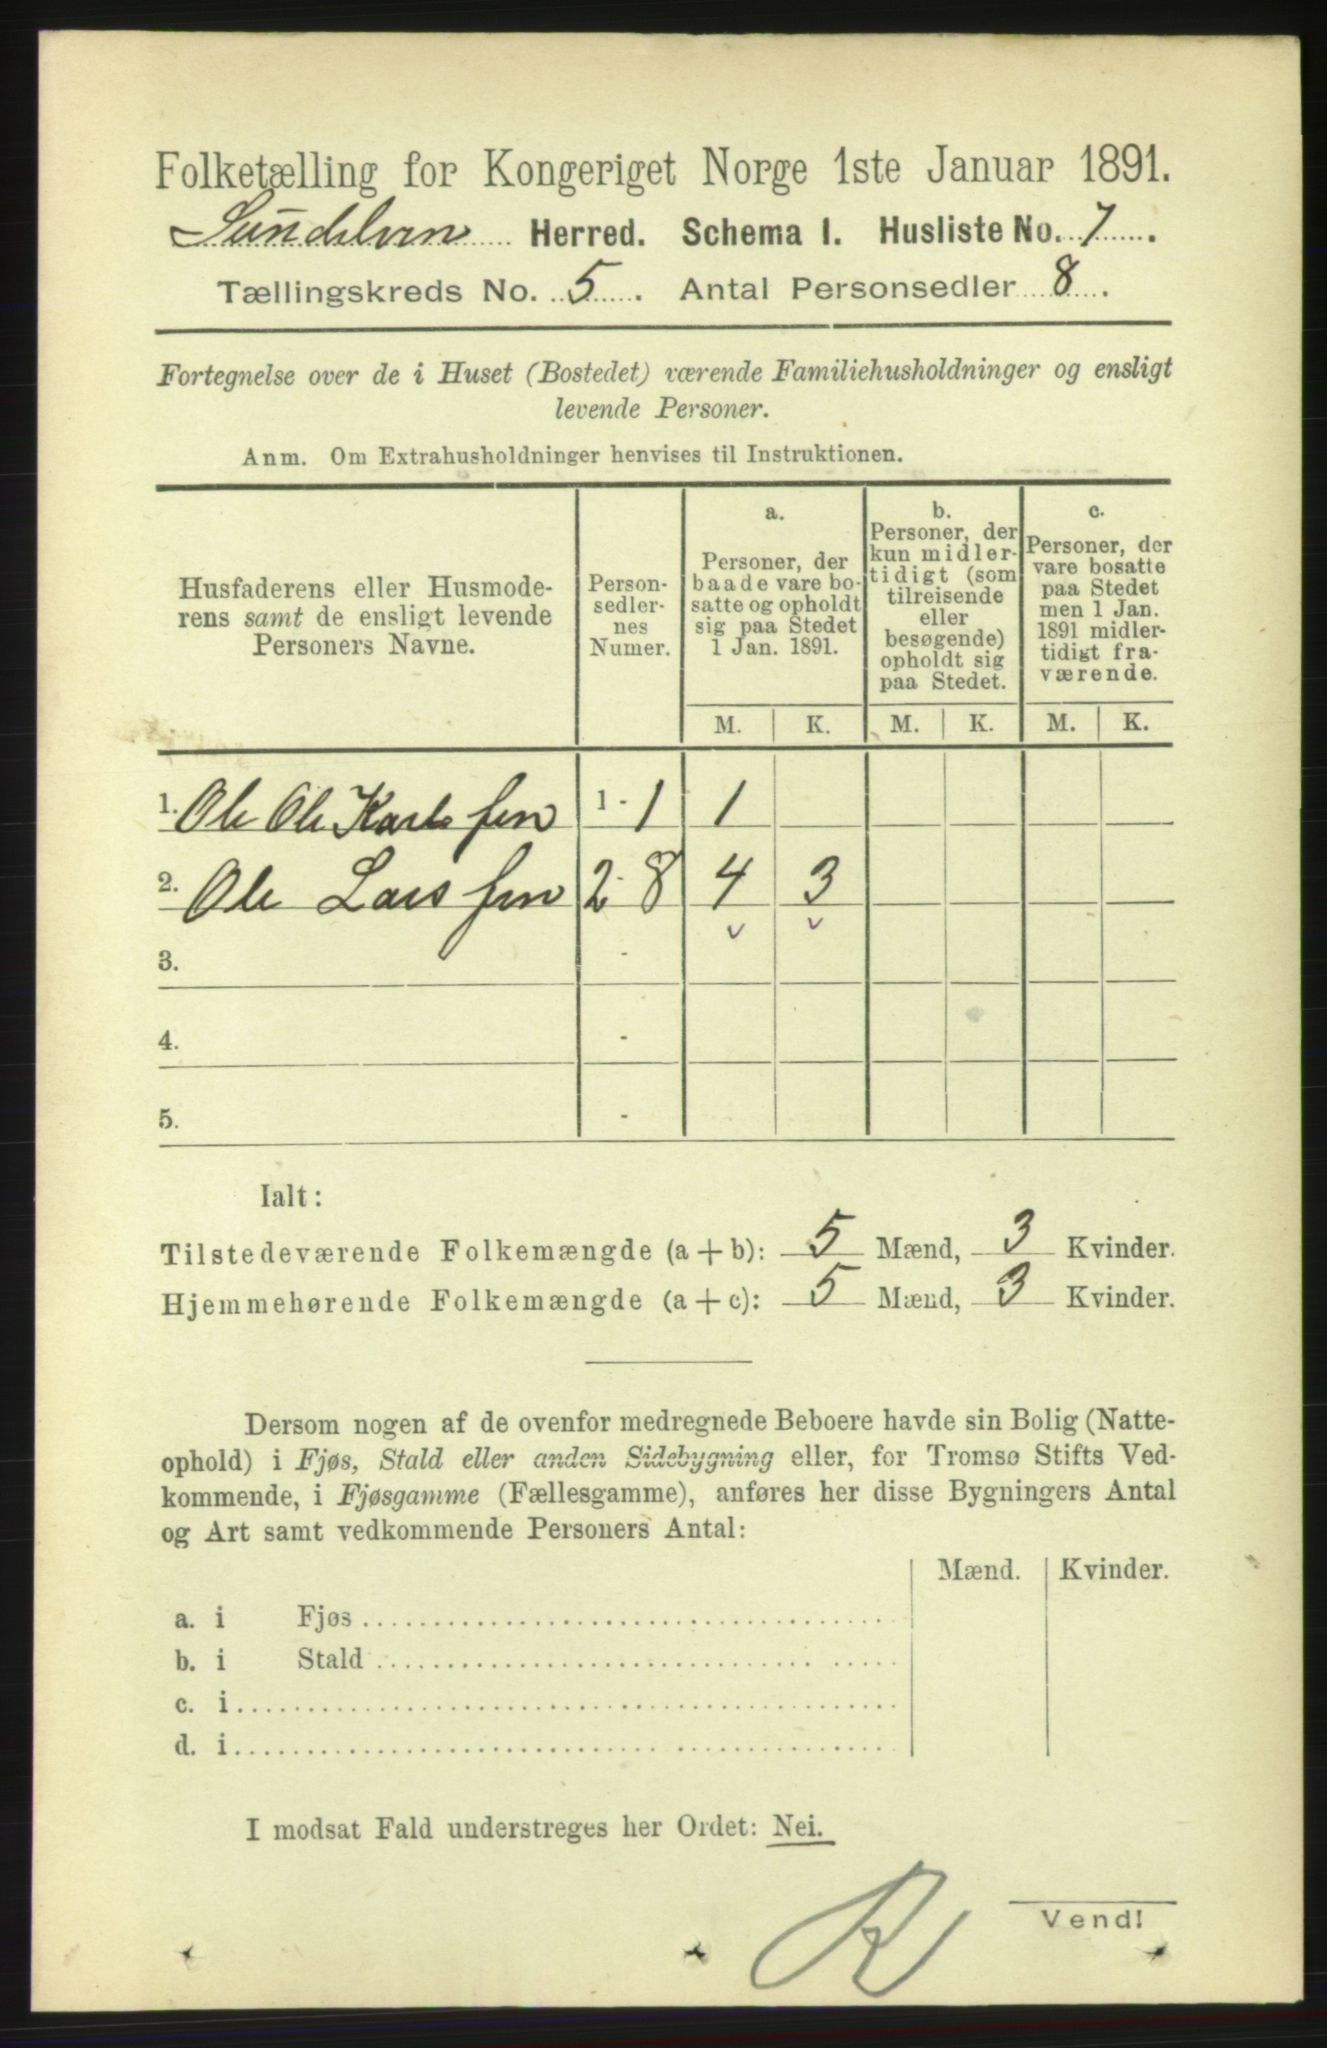 Folketælling for Kongeriget Norge 1ste Januar 1891.
Sundelven Herred. Schema I. Husliste No. 7.
Tællingskreds No. 5. Antal Personsedler 8.
Fortegnelse over de i Huset (Bostedet) værende Familiehusholdninger og ensligt
levende Personer.
Anm. Om Extrahusholdninger henvises til Instruktionen.
Husfaderens eller Husmode-
rens samt de ensligt levende
Personers Navne.
Person-
sedler-
nes
Numer.
a.
Personer, der
baade vare bo-
satte og opholdt
sig paa Stedet
1 Jan. 1891.
b.
Personer, der
kun midler-
tidigt (som
tilreisende
eller
besøgende)
opholdt sig
paa Stedet.
c.
Personer, der
vare bosatte
paa Stedet
men 1 Jan.
1891 midler-
tidigt fra-
værende.
M. K. M. K. M. K.
1. Ole Ole Karlssen 1 - 1 1
2. Ole Larssen 2 - 8 4 3
3. -
4. -
5. -
Ialt:
Tilstedeværende Folkemængde (a + b): 5 Mænd, 3 Kvinder.
Hjemmehørende Folkemængde (a + c): 5 Mænd, 3 Kvinder.
Dersom nogen af de ovenfor medregnede Beboere havde sin Bolig (Natte-
ophold) i Fjøs, Stald eller anden Sidebygning eller, for Tromsø Stifts Ved-
kommende, i Fjøsgamme (Fællesgamme), anføres her disse Bygningers Antal
og Art samt vedkommende Personers Antal:
Mænd. Kvinder.
a. i Fjøs
b. i Stald
c. i
d. i
I modsat Fald understreges her Ordet: Nei.
R
Vend!